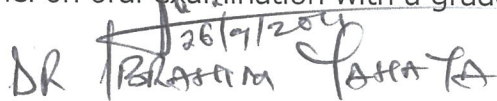 on oral examination with a grade
26/9/2011
DR IBRAHIM YAHAYA